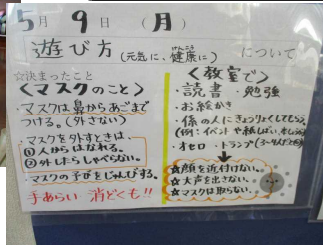 5月 9日 (月)
遊び方 (元気に、健康に) について
けんこう
☆決まったこと
<マスクのこと>
・マスクは鼻からあごまで
つける。(外さない)
・マスクを外すときは、
①人からはなれる。
②外したらしゃべらない。
・マスクの予びをじゅんびする。
手あらい 消どくも!!
<教室で>
・読書 ・勉強
・お絵かき
・係の人にきょうりょくしてもらう。
(例:イベントや紙しばい、
・オセロ ・トランプ
☆顔を近付けない。
☆大声を出さない。
☆マスクは取らない。